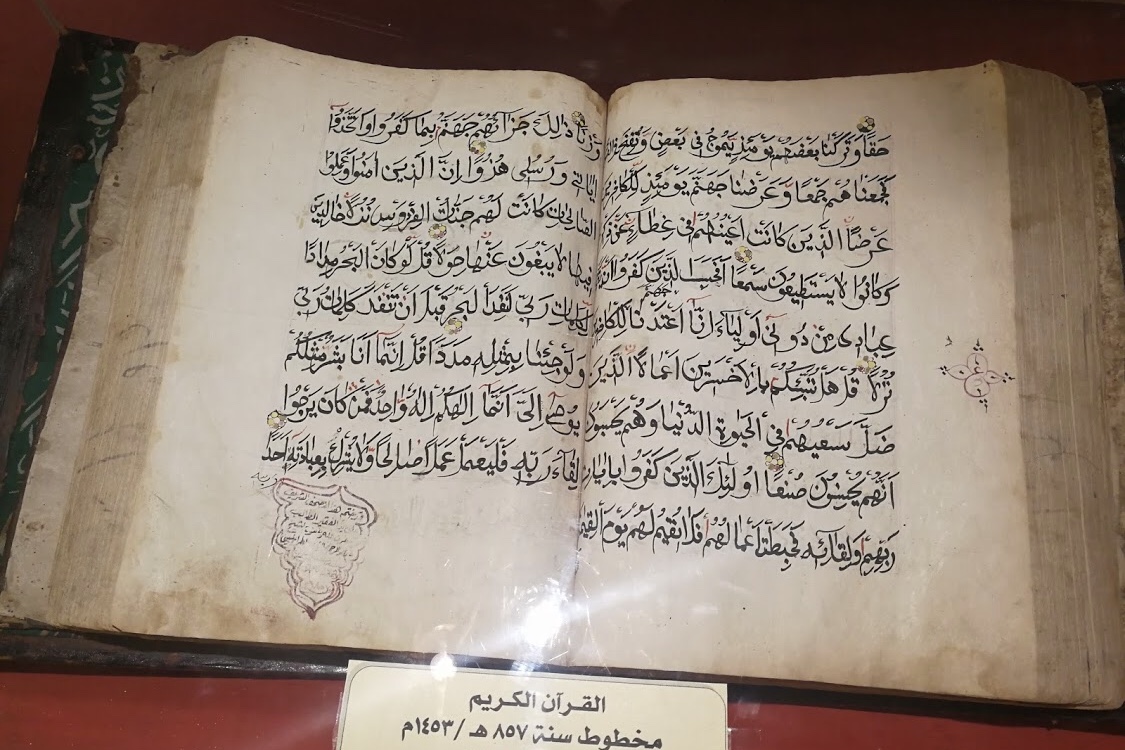 حقا وتركنا بعضهم يومئذ يموج في بعض ونفخ
فجمعناهم جمعا وعرضنا جهنم يومئذ للكافرين
عرضا الذين كانت اعينهم في غطاء عن
وكانوا لا يستطيعون سمعا افحسب الذين كفروا ان
عبادي من دوني اولياء انا اعتدنا جهنم للكافرين
نزلا قل هل ننبئكم بالاخسرين اعمالا الذين
ضل سعيهم في الحيوة الدنيا وهم يحسبون
انهم يحسنون صنعا اولئك الذين كفروا بايات
ربهم ولقائه فحبطت اعمالهم فلا نقيم لهم يوم القيمة
وزنا ذلك جزاؤهم جهنم بما كفروا واتخذوا
اياتي ورسلي هزوا ان الذين امنوا وعملوا
الصالحات كانت لهم جنات الفردوس نزلا خالدين
فيها لا يبغون عنها حولا قل لو كان البحر مدادا
لكلمات ربي لنفد البحر قبل ان تنفد كلمات ربي
ولو جئنا بمثله مددا قل انما انا بشر مثلكم
يوحى الي انما الهكم اله واحد فمن كان يرجوا
لقاء ربه فليعمل عملا صالحا ولا يشرك بعبادة ربه احدا
القرآن الكريم
مخطوط سنة ٨٥٧ هـ /١٤٥٣م